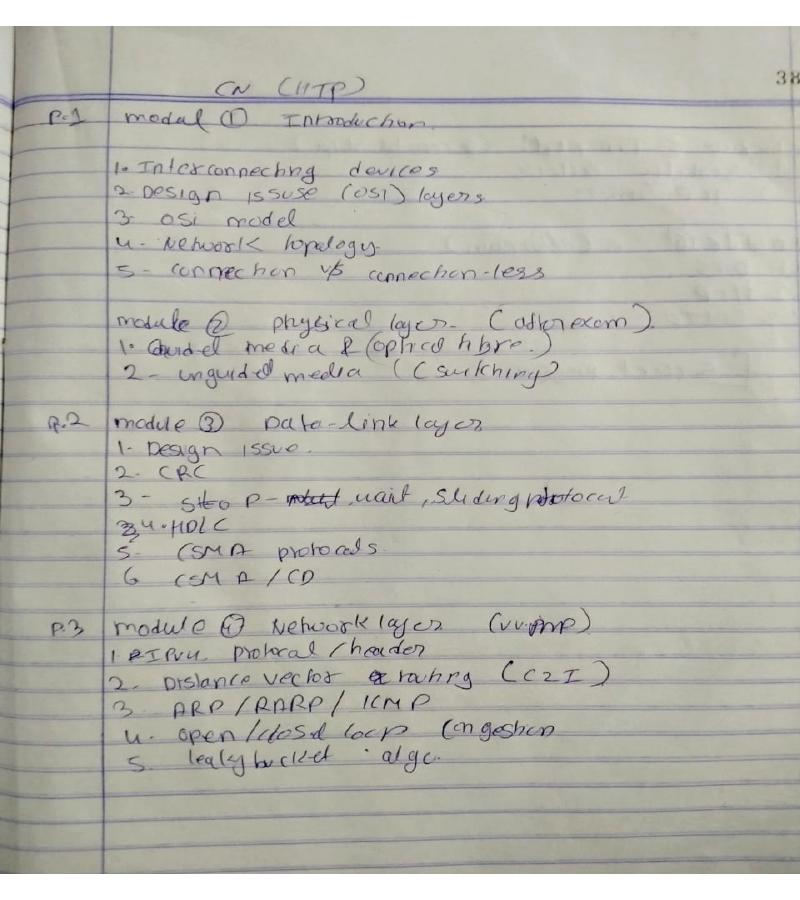 38
CN (HTP)
P.1 modul ① Introduction.
1. Interconnecting devices
2. Design issuse (OSI) layers
3- OSI model
4- Network topology.
5- connection v/s connection-less
module ② physical layer- (after exam).
1. Guided media & (optical fibre.)
2- unguided media ( (switching)
P.2 module ③ Data-link layer
1- Design issue.
2. CRC
3- stop- wait, sliding protocol
4. HDLC
5- CSMA protocals
6 CSMA/CD
P.3 module ④ Network layer (vv.imp)
1. IPv4 protocal/header
2. Distance vector routing (C2I)
3. ARP/RARP/ICMP
4. open/closd loop Congestion
5. leaky bucket algo.